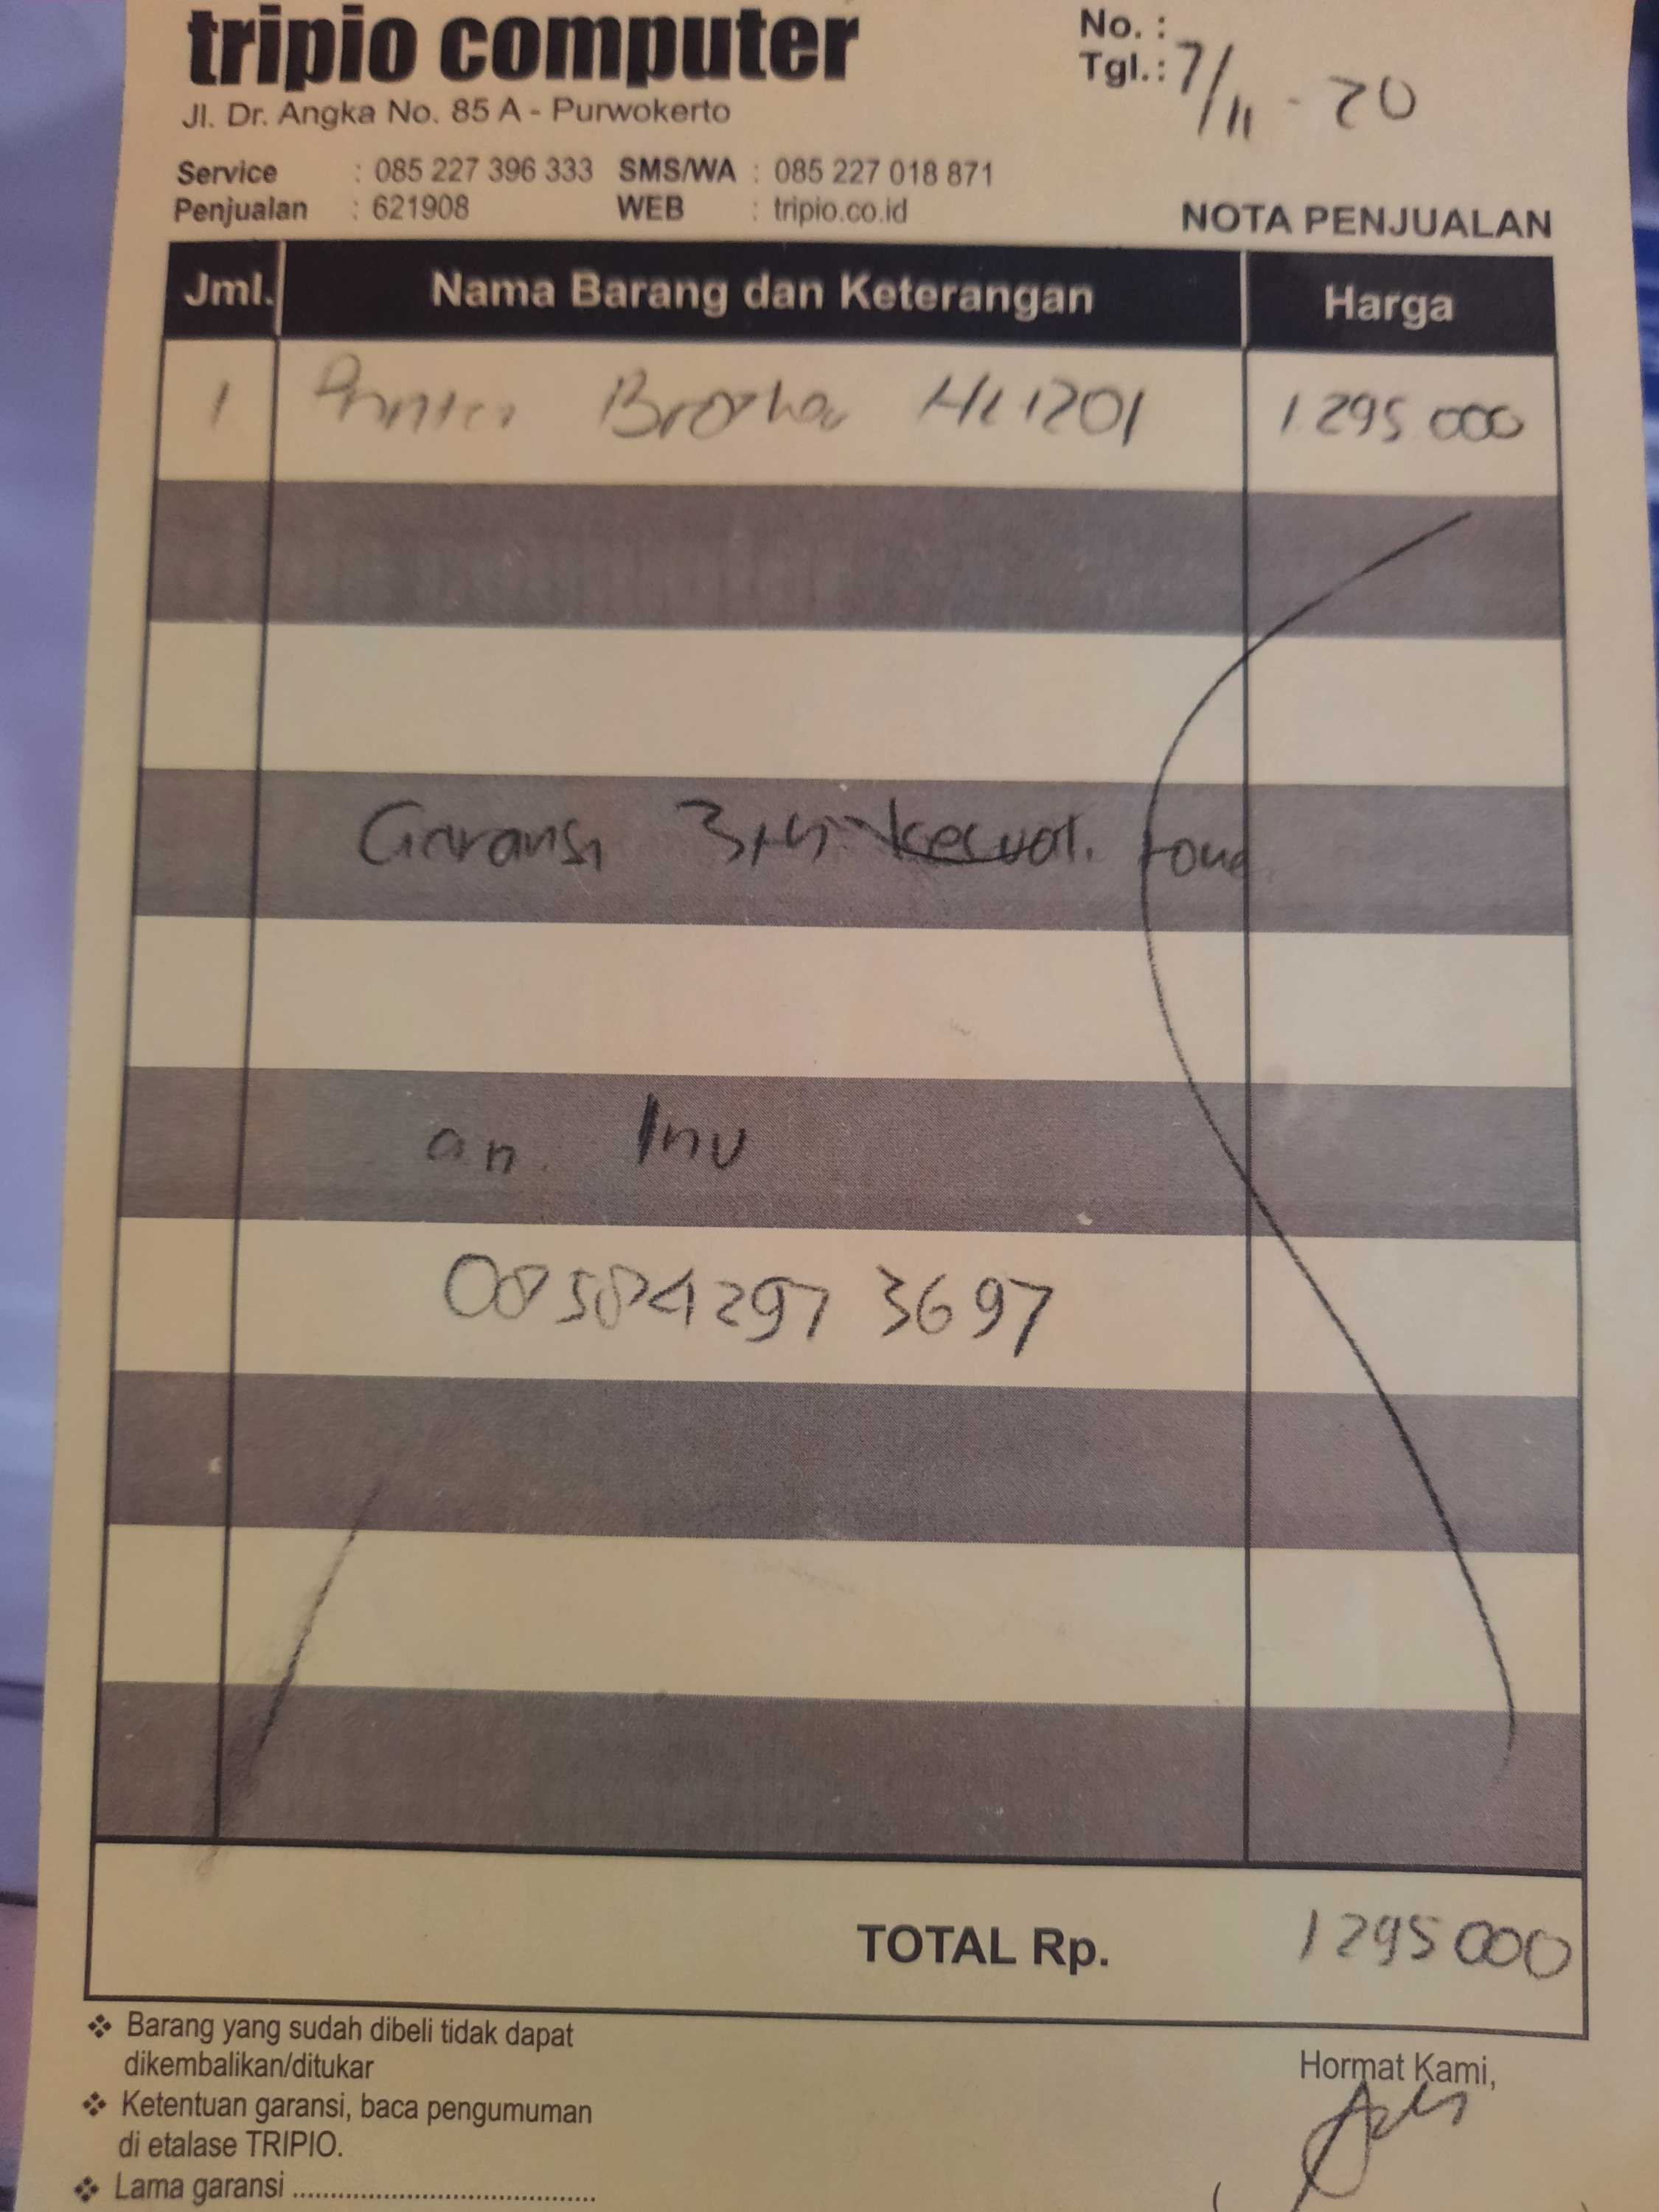 tripio computer
Jl. Dr. Angka No. 85 A - Purwokerto
No. :
Tgl. : 7/11 - 20
Service : 085 227 396 333 SMS/WA : 085 227 018 871
Penjualan : 621908 WEB : tripio.co.id
NOTA PENJUALAN
Jml. Nama Barang dan Keterangan Harga
1 Printer Brother HL1201 1.295.000
Garansi 3
an.
085842973697
TOTAL Rp. 1295000
❖ Barang yang sudah dibeli tidak dapat
dikembalikan/ditukar
❖ Ketentuan garansi, baca pengumuman
di etalase TRIPIO.
❖ Lama garansi ..........................................
Hormat Kami,